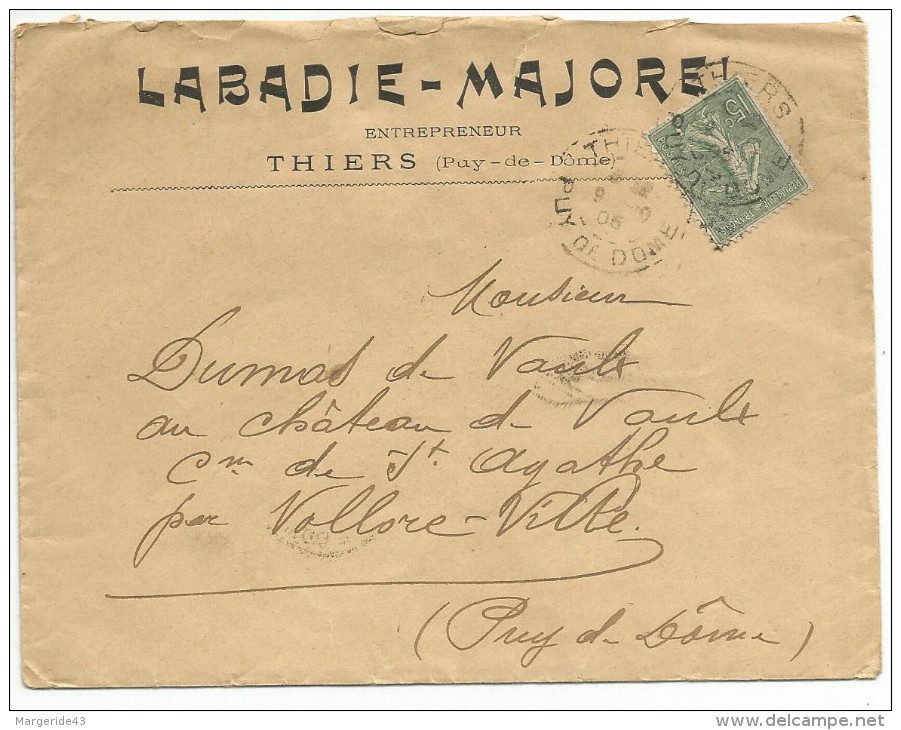 LABADIE-MAJOREL
ENTREPRENEUR
THIERS (Puy-de-Dôme)
15
THIERS
PUY
DE DOME
Monsieur
Dumas de Vaulx
au château de Vaulx
Cne de St. Agathe
par Vollore-Ville.
(Puy de Dôme)
Margeride43
www.delcampe.net